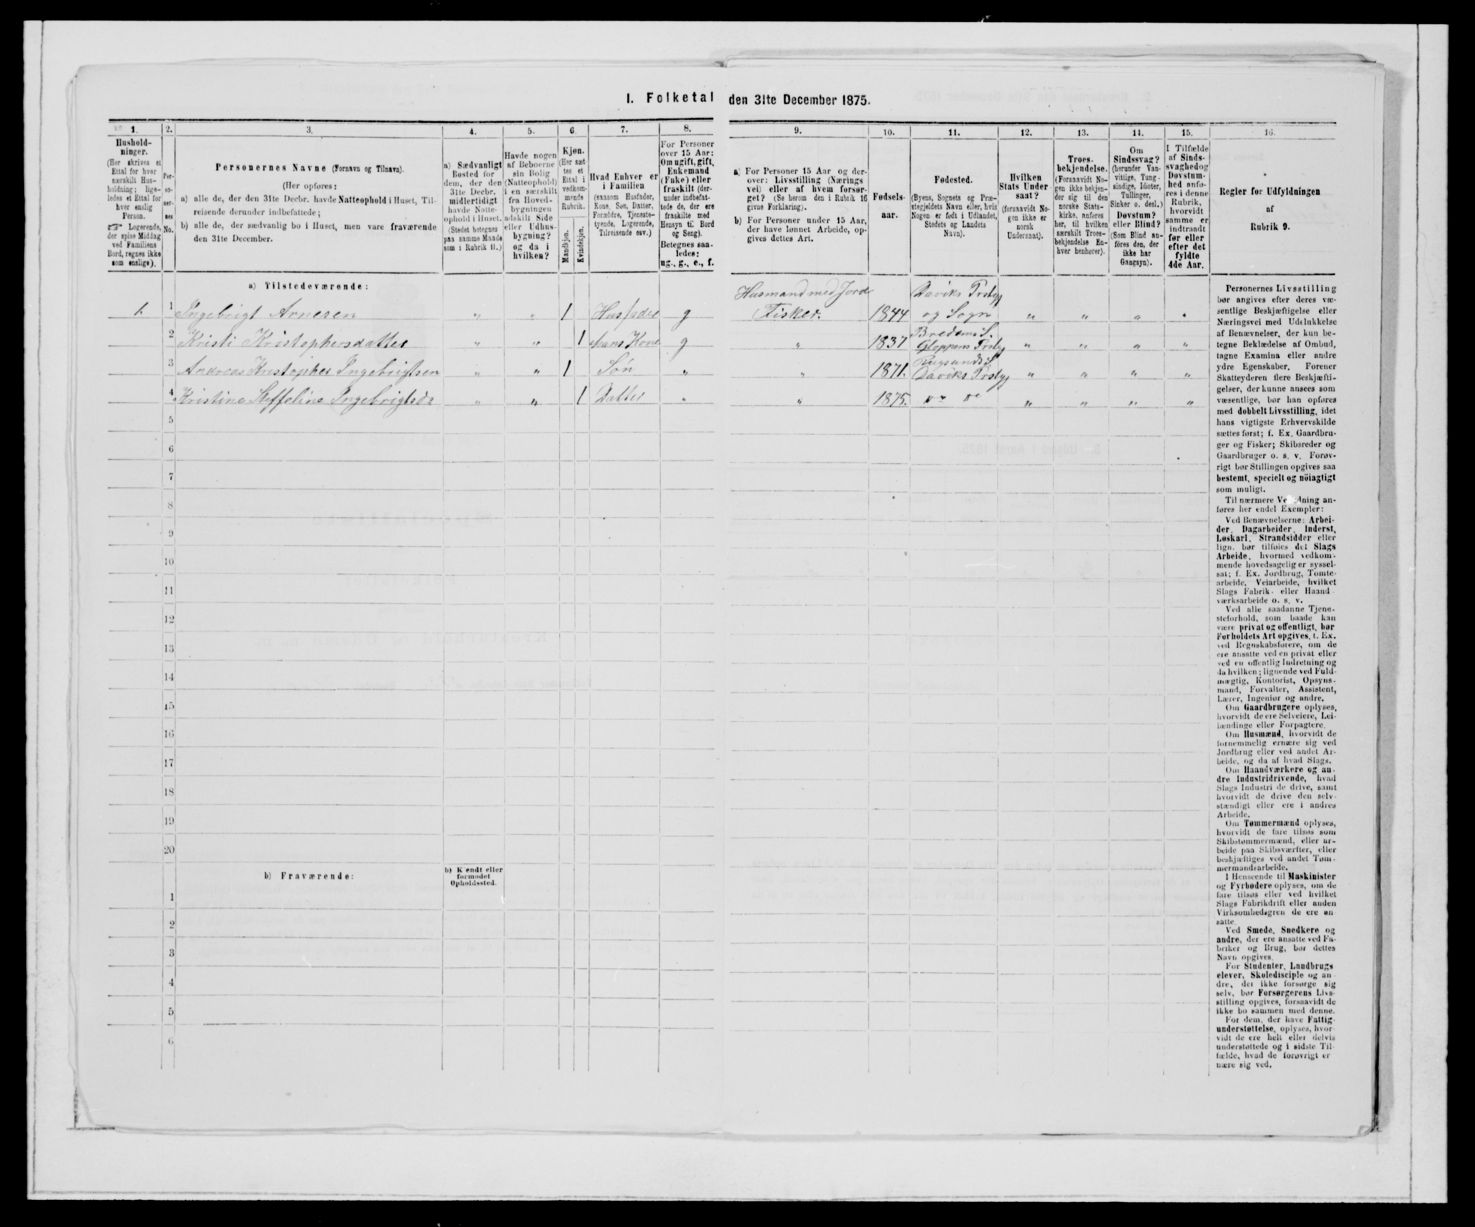 I. Folketal den 31te December 1875.
1.
Hushold-
ninger.
(Her skrives et
Ettal for hver
særskilt Hus-
holdning; lige-
ledes et Ettal for
hver enslig
Person.
Logerende,
der spise Middag
ved Familiens
Bord, regnes ikke
som enslige).
2.
Per-
so-
ner-
nes
No.
3.
Personernes Navne (Fornavn og Tilnavn).
(Her opføres:
a) alle de, der den 31te Decbr. havde Natteophold i Huset, Til-
reisende derunder indbefattede;
b) alle de, der sædvanlig bo i Huset, men vare fraværende
den 31te December.
4.
a) Sædvanligt
Bosted for
dem, der den
31te Decbr.
midlertidigt
havde Natte-
ophold i Huset.
(Stedet betegnes
paa samme Maade
som i Rubrik 11.)
5.
Havde nogen
af Beboerne
sin Bolig
(Natteophold)
i en særskilt
fra Hoved-
bygningen
adskilt Side
eller Udhus-
bygning?
og da i
hvilken?
6.
Kjøn.
(Her sæt-
tes et
Ettal i
vedkom-
mende
Rubrik.
Mandkjøn.
Kvindekjøn.
7.
Hvad Enhver er
i Familien
(saasom Husfader,
Kone, Søn, Datter,
Forældre, Tjeneste-
tyende, Logerende,
Tilreisende osv.)
8.
For Personer
over 15 Aar:
Om ugift, gift,
Enkemand
(Enke) eller
fraskilt (der-
under indbefat-
tede de, der ere
fraskilte med
Hensyn til Bord
og Seng).
Betegnes saa-
ledes:
ug., g., e., f.
9.
a) For Personer 15 Aar og der-
over: Livsstilling (Nærings
vei) eller af hvem forsør-
get? (Se herom den i Rubrik 16
givne Forklaring).
b) For Personer under 15 Aar,
der have lønnet Arbeide, op-
gives dettes Art.
10.
Fødsels-
aar.
11.
Fødested.
(Byens, Sognets og Præ-
stegjeldets Navn eller, hvis
Nogen er født i Udlandet,
Stedets og Landets
Navn).
12.
Hvilken
Stats Under
saat?
(foranavidt No-
gen ikke er
norsk
Undersaat).
13.
Troes-
bekjendelse.
(Foranavidt No-
gen ikke bekjen-
der sig til den
norske Stats-
kirke, anføres
her, til hvilken
særskilt Troes-
bekjendelse En-
hver henhører).
14.
Om
Sindssvag?
(herunder Van-
vittige, Tung-
sindige, Idioter,
Tullinger,
Sinker o. desl.)
Døvstum?
eller Blind?
(Som Blind an-
føres den, der
ikke har
Gangsyn).
15.
I Tilfælde
af Sinds-
svaghed og
Døvstum-
hed anfø-
res i denne
Rubrik,
hvorvidt
samme er
indtraadt
før eller
efter det
fyldte
4de Aar.
16.
Regler for Udfyldningen
af
Rubrik 9.
a) Tilstedeværende:
1. 1 Ingebrigt Arnesen " " 1 Husfader g Husmand med Jord Fisker. 1844 Daviks Prstgj og Sogn " " "
2 Kristi Kristophersdatter " " 1 hans Kone g " 1837 Bredems S. Gloppens Prstgj " " " "
3 Andreas Kristopher Ingebrigtsen " " 1 Søn " " 1871. Rugsunds S. Daviks Prstgj " " " "
4 Kristine Steffeline Ingebrigtsdr " " 1 Datter " " 1875. do do " " " "
5
6
7
8
9
10
11
12
13
14
15
16
17
18
19
20
b) Fraværende:
b) Kjendt eller
formodet
Opholdssted.
1
2
3
4
5
6
Personernes Livsstilling
bør angives efter deres væ-
sentlige Beskjæftigelse eller
Næringsvei med Udelukkelse
af Benævnelser, der kun be-
tegne Beklædelse af Ombud,
tagne Examina eller andre
ydre Egenskaber. Forener
Skatteyderen flere Beskjæfti-
gelser, der kunne ansees som
væsentlige, bør han opføres
med dobbelt Livsstilling, idet
hans vigtigste Erhvervskilde
sættes først; f. Ex. Gaardbru-
ger og Fisker; Skibsreder og
Gaardbruger o. s. v. Forøv-
rigt bør Stillingen opgives saa
bestemt, specielt og nöiagtigt
som muligt.
Til nærmere Veiledning an-
føres her endel Exempler:
Ved Benævnelserne: Arbei-
der, Dagarbeider, Inderst,
Løskarl, Strandsidder eller
lign. bør tilføies det Slags
Arbeide, hvormed vedkom-
mende hovedsagelig er syssel-
sat; f. Ex. Jordbrug, Tomte-
arbeide, Veiarbeide, hvilket
Slags Fabrik- eller Haand-
værksarbeide o. s. v.
Ved alle saadanne Tjene-
steforhold, som baade kan
være privat og offentligt, bør
Forholdets Art opgives, f. Ex.
ved Regnskabsførere, om de
ere ansatte ved en privat eller
ved en offentlig Indretning og
da hvilken; lignende ved Fuld-
mægtig, Kontorist, Opsyns-
mand, Forvalter, Assistent,
Lærer, Ingeniør og andre.
Om Gaardbrugere oplyses,
hvorvidt de ere Selveiere, Lei-
lændinge eller Forpagtere.
Om Husmænd, hvorvidt de
fornemmelig ernære sig ved
Jordbrug eller ved andet Ar-
beide, og da af hvad Slags.
Om Haandværkere og an-
dre Industridrivende, hvad
Slags Industri de drive, samt
hvorvidt de drive den selv-
stændigt eller ere i andres
Arbeide.
Om Tømmermænd oplyses,
hvorvidt de fare tilsøs som
Skibstømmermænd, eller ar-
beide paa Skibsværfter, eller
beskjæftiges ved andet Tøm-
mermandsarbeide.
I Henseende til Maskinister
og Fyrbødere oplyses, om de
fare tilsøs eller ved hvilket
Slags Fabrikdrift eller anden
Virksomhedsgren de ere an-
satte.
Ved Smede, Snedkere og
andre, der ere ansatte ved Fa-
briker og Brug, bør dettes
Navn opgives.
For Studenter, Landbrugs-
elever, Skoledisciple og an-
dre, der ikke forsørge sig
selv, bør Forsørgerens Livs-
stilling opgives, forsaavidt de
ikke bo sammen med denne.
For dem, der have Fattig-
understøttelse, oplyses, hvor-
vidt de ere helt eller delvis
understøttede og i sidste Til-
fælde, hvad de forøvrigt er-
nære sig ved.